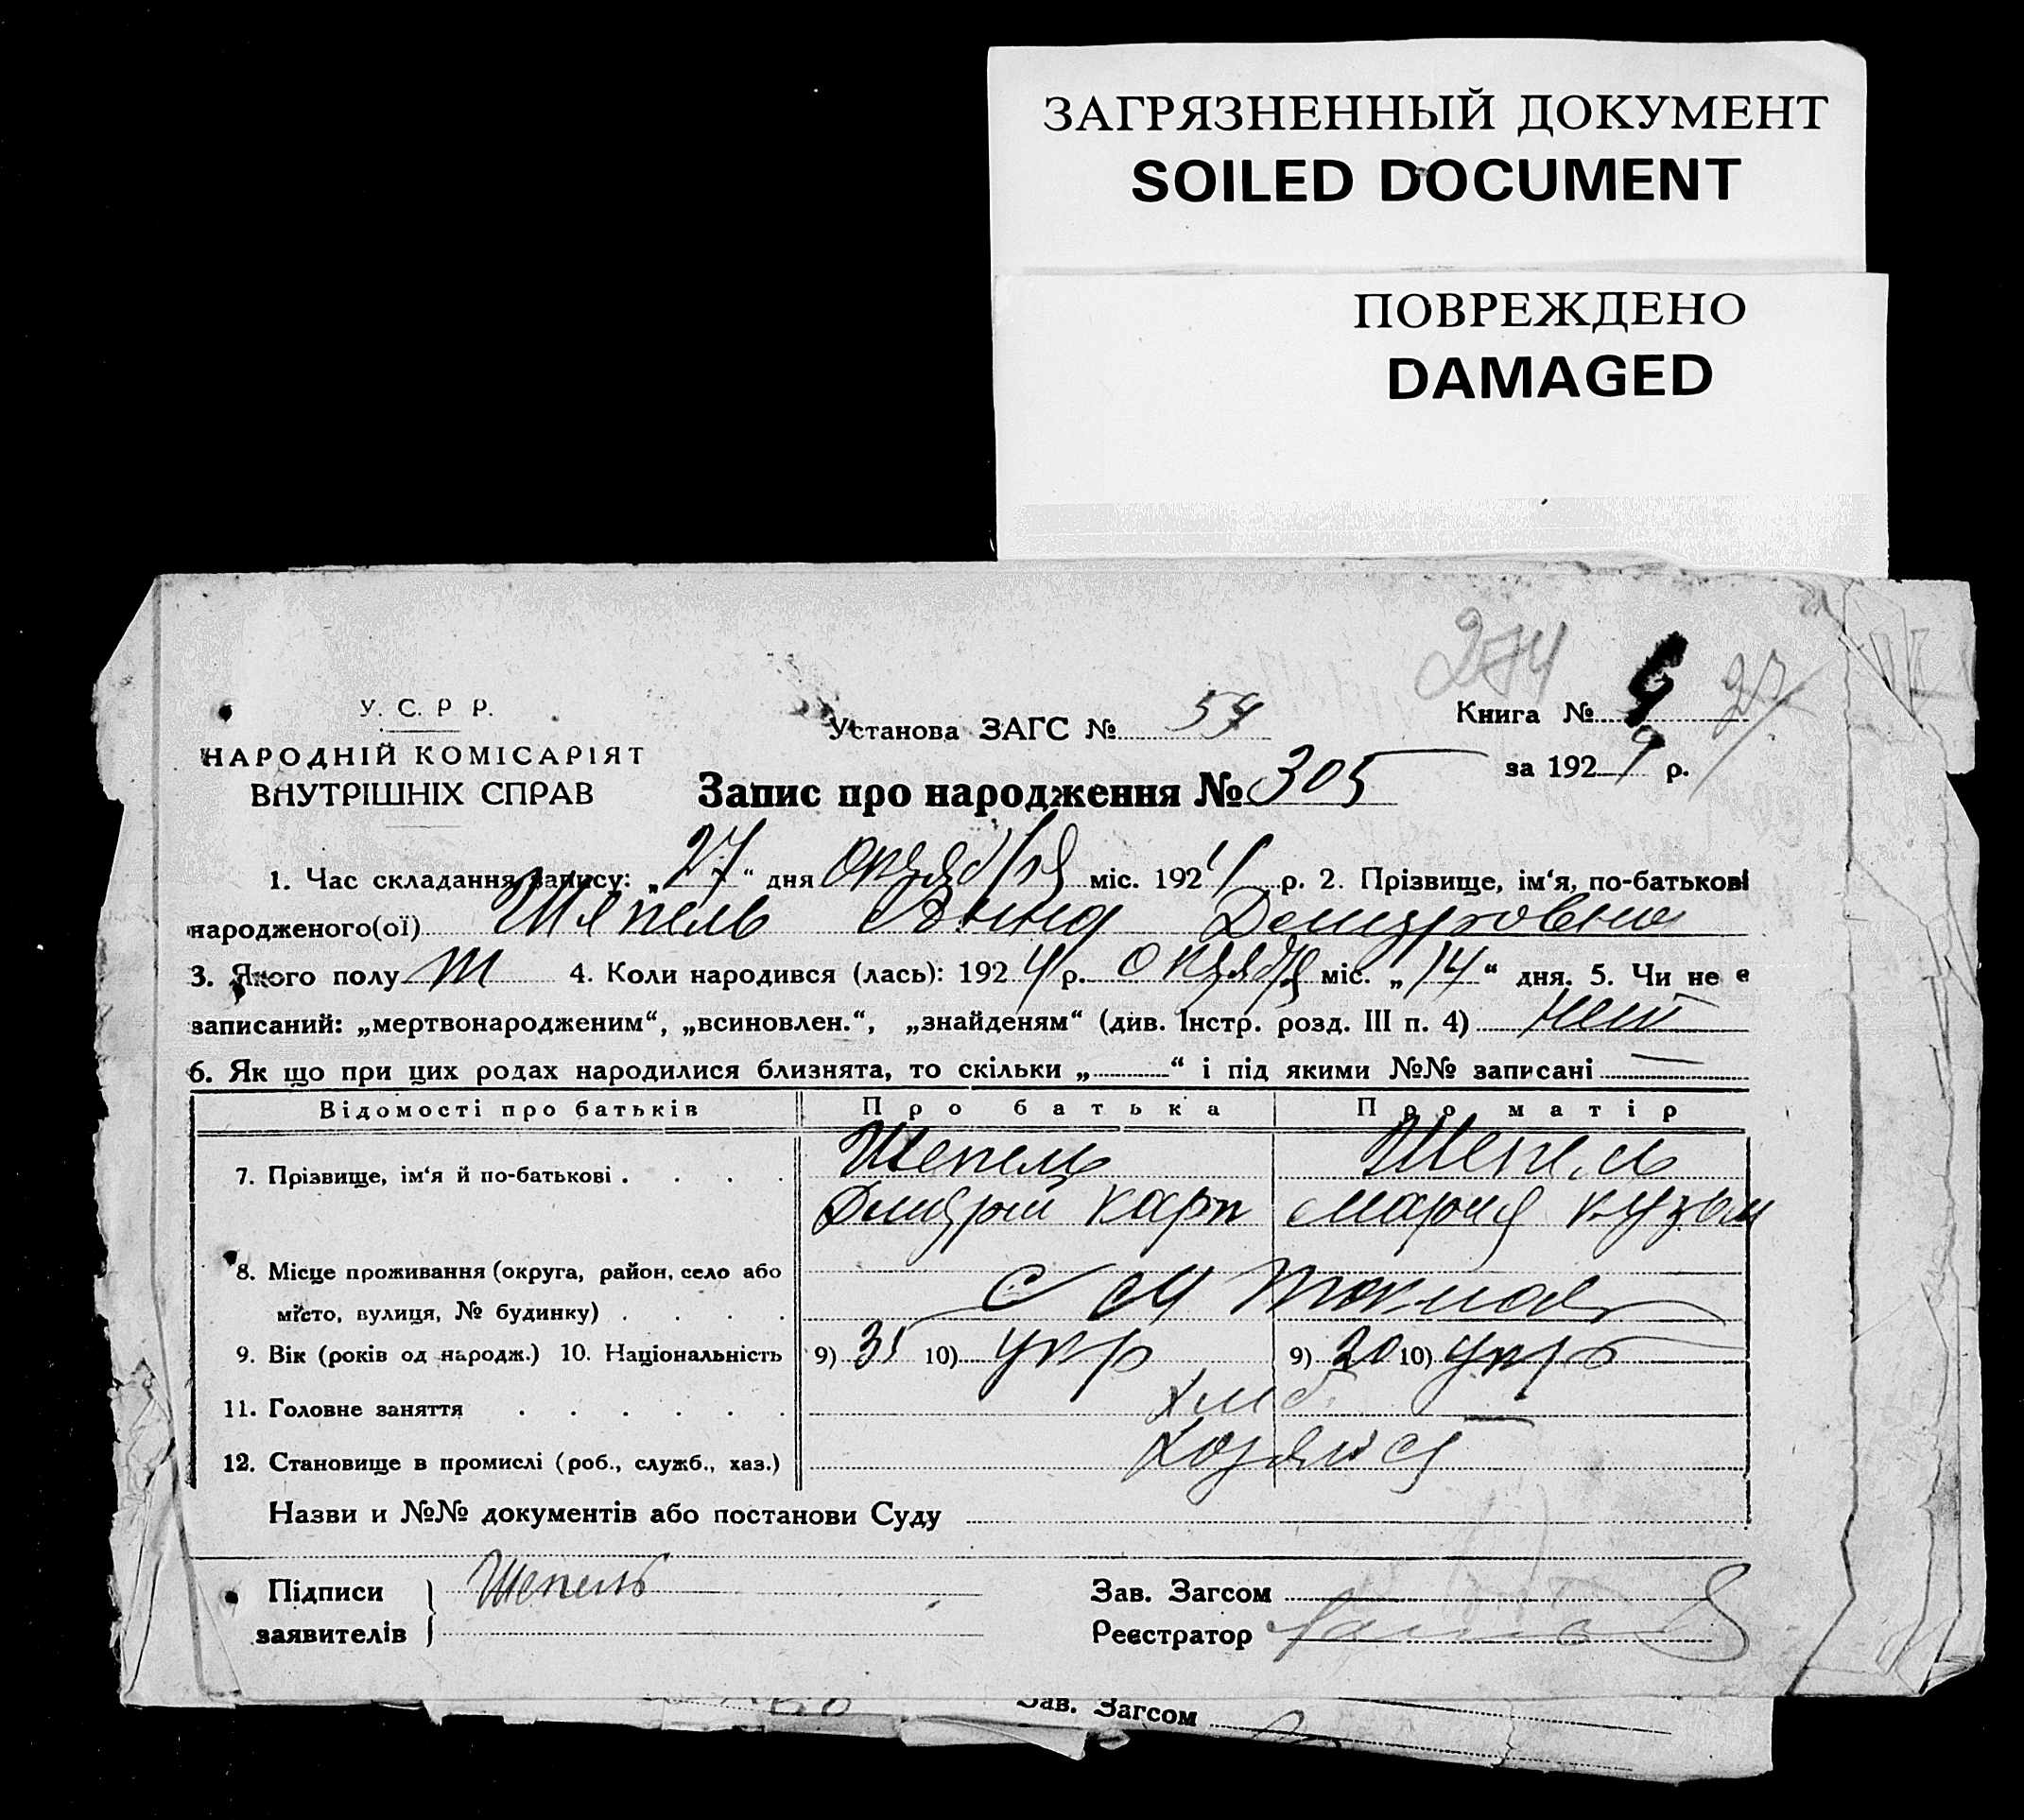 ЗАГРЯЗНЕННЫЙ ДОКУМЕНТ
SOILED DOCUMENT
ПОВРЕЖДЕНО
DAMAGED
274
У. С. Р Р.
НАРОДНІЙ КОМІСАРІЯТ
ВНУТРІШНІХ СПРАВ
Установа ЗАГС № 54
Книга № 27
за 192 р.
Запис про народження № 305
1. Час складання запису: „27“ дня октября міс. 1924 р. 2. Прізвище, ім‘я, по-батькові
народженого(ої) Шепель Анна Дмитровна
3. Якого полу ж 4. Коли народився (лась): 1924 р. октября міс. „14“ дня. 5. Чи не є
записаний: „мертвонародженим“, „всиновлен.“, „знайденям“ (див. Інстр. розд. III п. 4) нет
6. Як що при цих родах народилися близнята, то скільки „ “ і під якими №№ записані —
Відомості про батьків Про батька Про матір
7. Прізвище, ім‘я й по-батькові . . . . Шепель Шепель
Дмитрий Карп Мария Кузьм
8. Місце проживання (округа, район, село або
місто, вулиця, № будинку) . . . . с М Токмак
9. Вік (років од народж.) 10. Національність 9) 35 10) укр 9) 20 10) укр
11. Головне заняття . . . . . . хлеб
12. Становище в промислі (роб., служб., хаз.)
Назви и №№ документів або постанови Суду
Підписи
заявителів
Шепель
Зав. Загсом
Реєстратор
Зав. Загсом